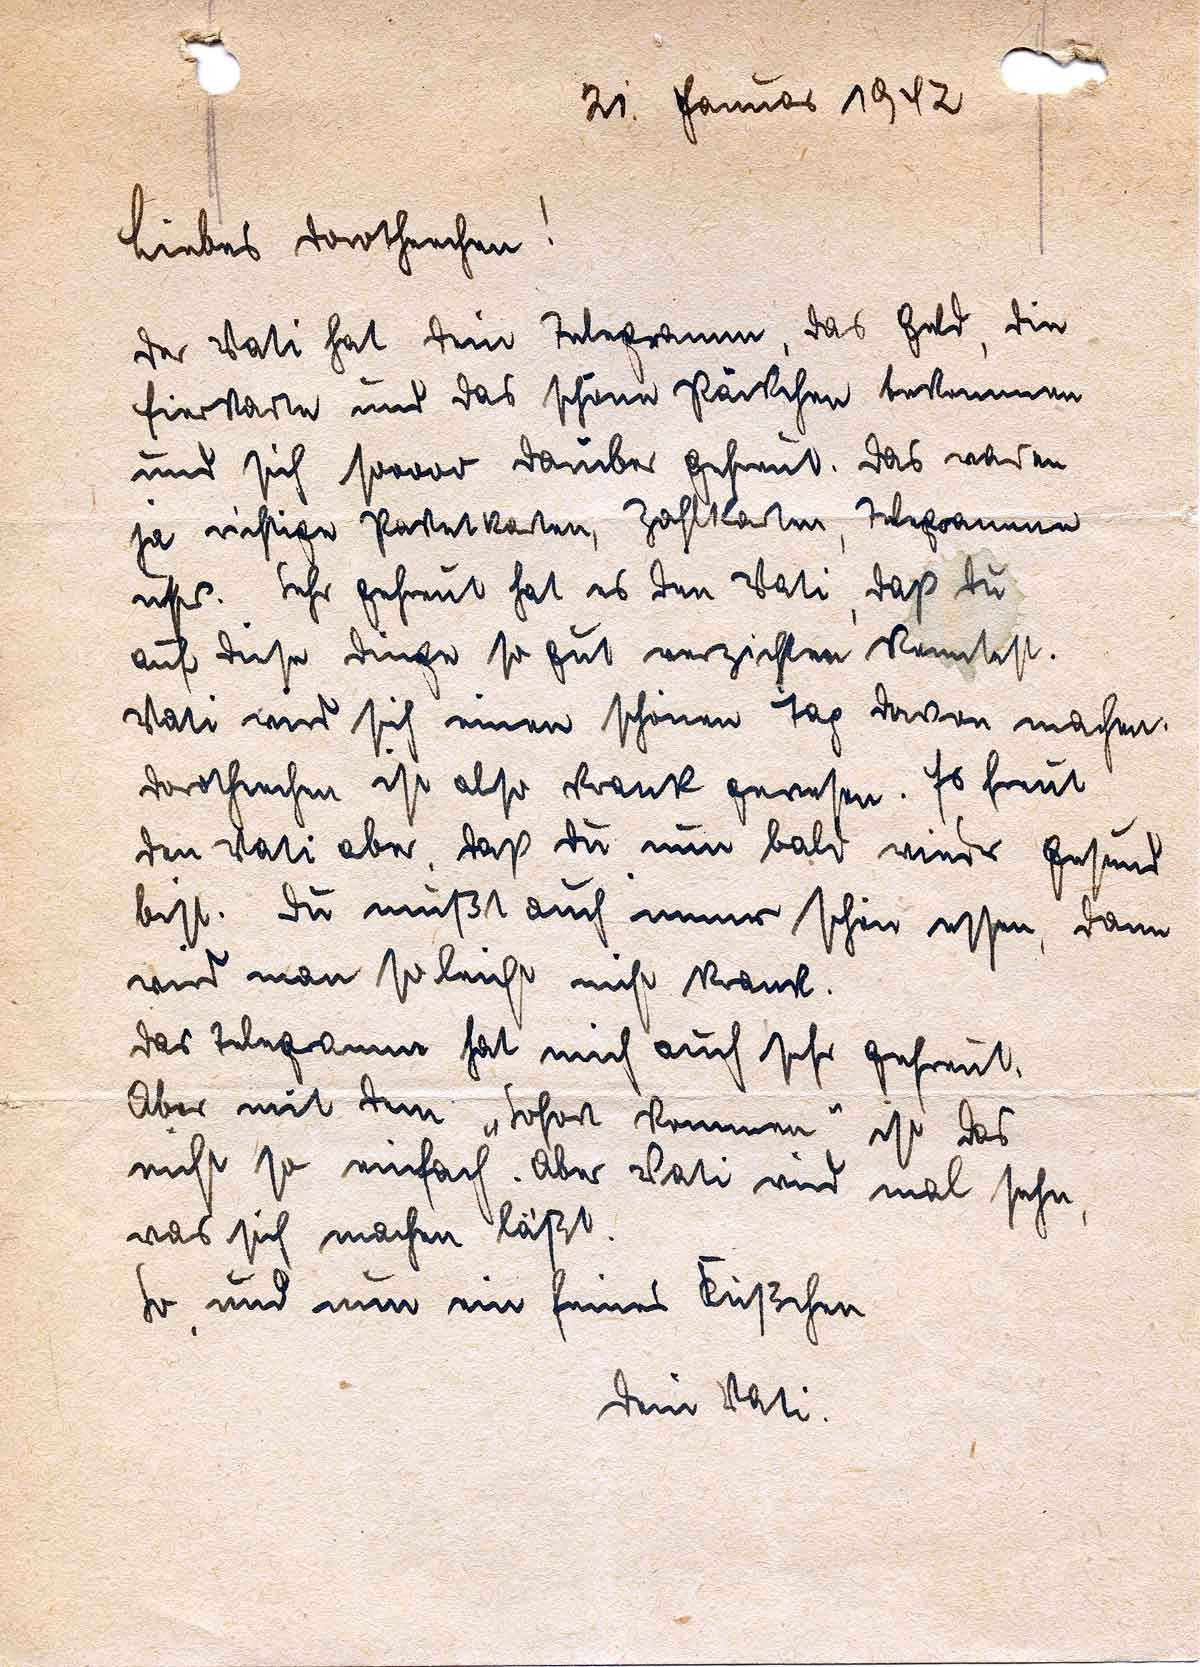 21. Januar 1942
Liebes Dorotheechen!
Der Vati hat Dein Telegramm, das Geld, die
Eierkarte und das schöne Päckchen bekommen
und sich sooooo darüber gefreut. Das waren
ja richtige Paketkarten, Zahlkarten, Telegramme
usw. Sehr gefreut hat es den Vati, daß Du
auf diese Dinge so gut verzichten konntest.
Vati wird sich einen schönen Tag davon machen.
Dorotheechen ist also krank gewesen. Es freut
den Vati aber, daß Du nun bald wieder gesund
bist. Du mußt auch immer schön essen, dann
wird man so leicht nicht krank.
Das Telegramm hat mich auch sehr gefreut.
Aber mit dem „Sofort kommen" ist das
nicht so einfach. Aber Vati wird mal sehn,
was sich machen läßt.
So, und nun ein feines Küßchen
Dein Vati.